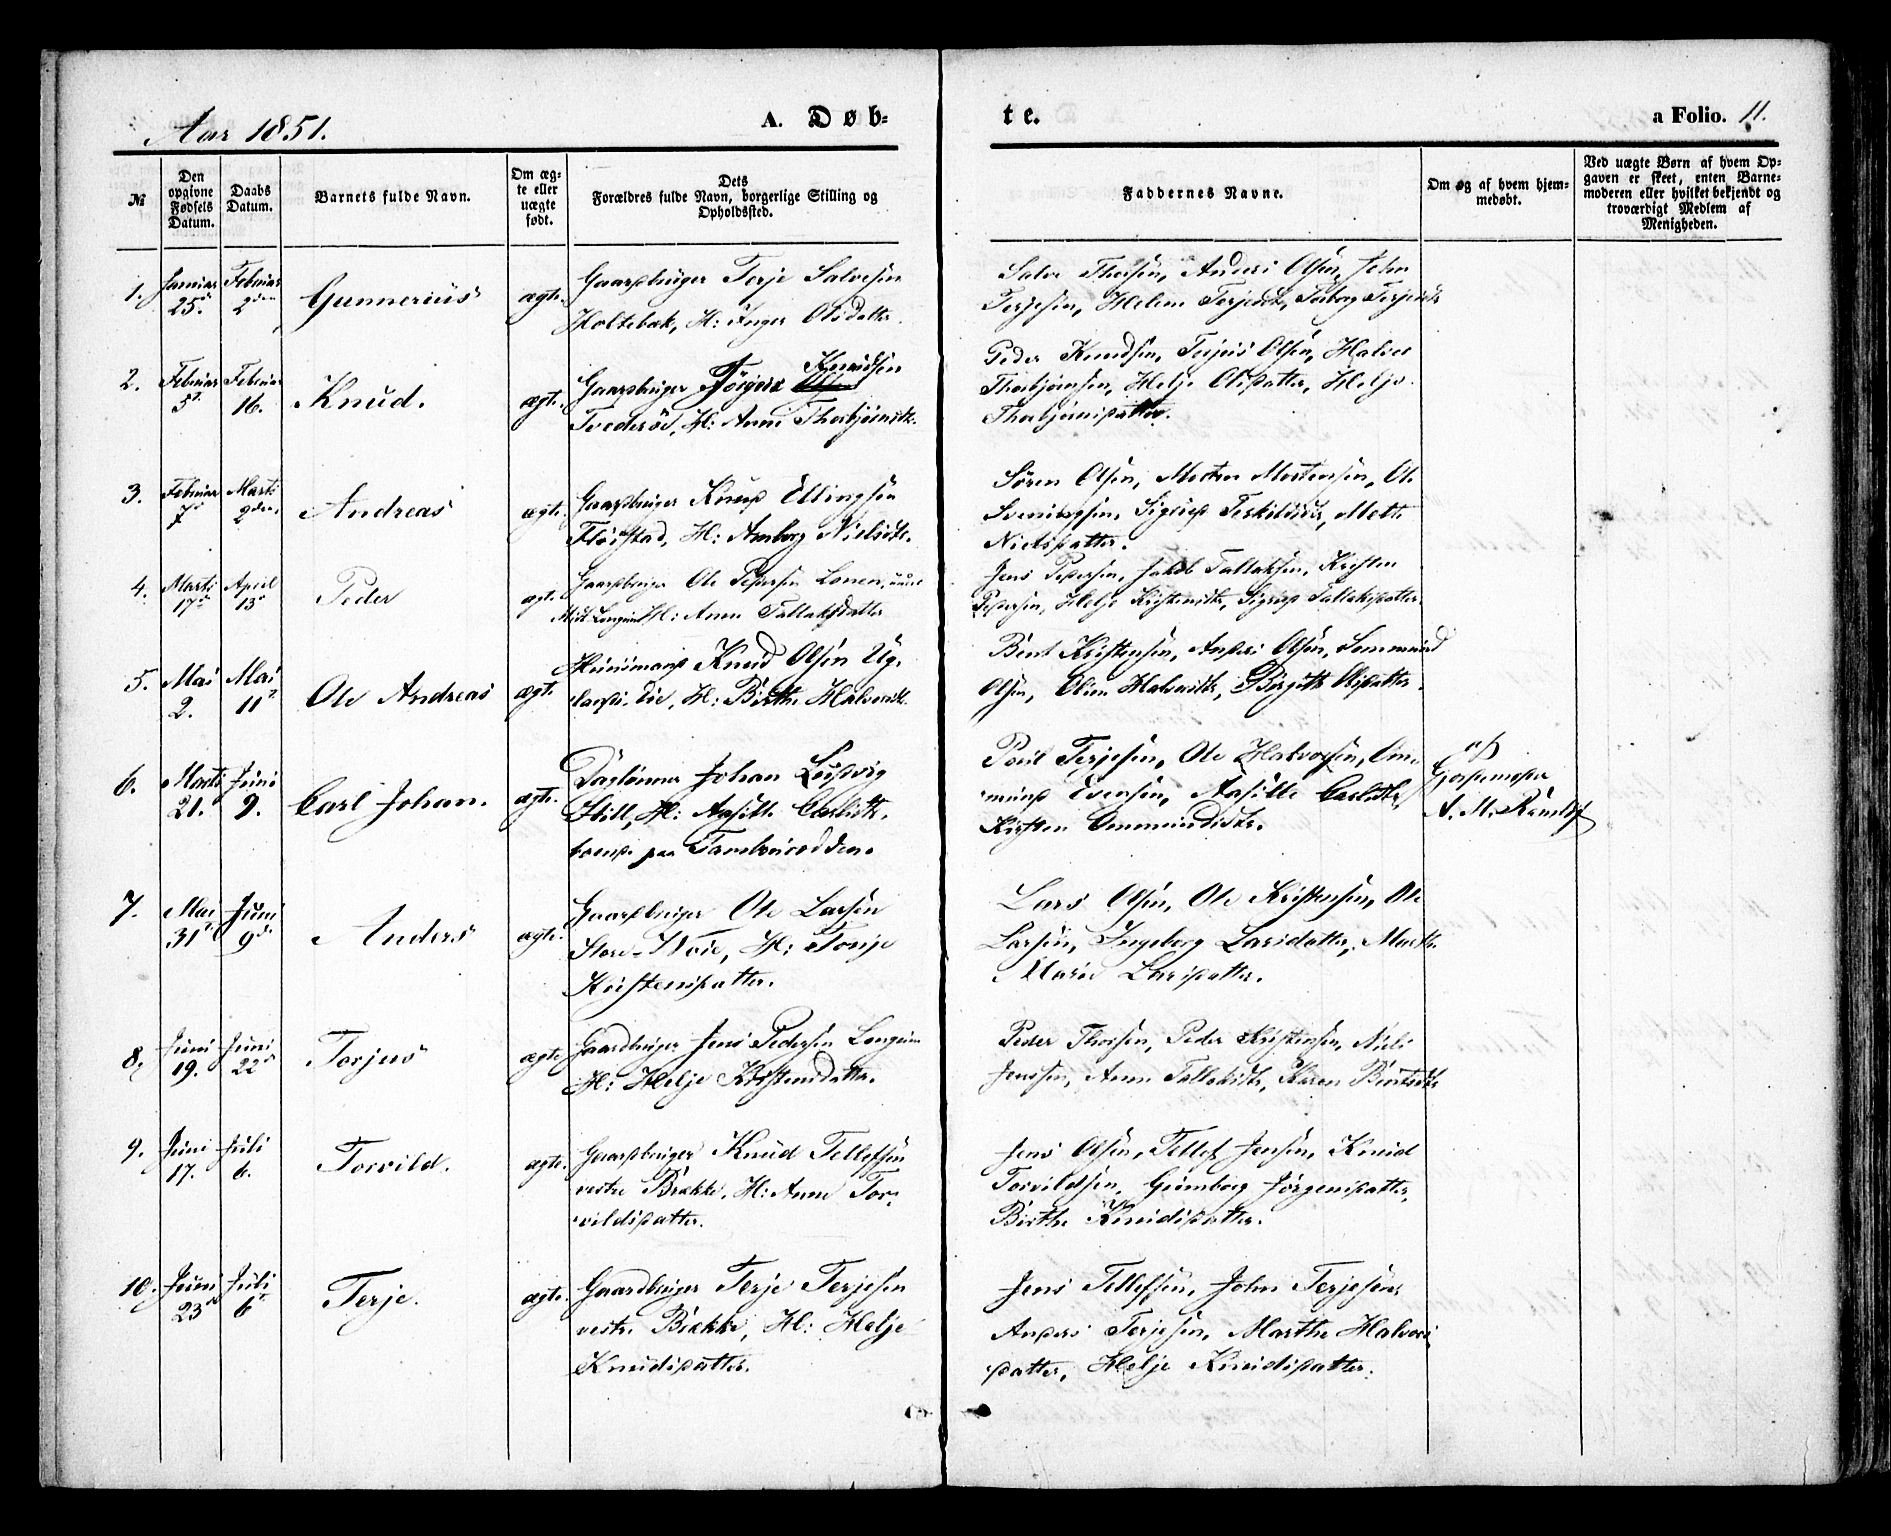 Aar 1851.
A. Døb-
te.
a Folio. 11.
№
Den opgivne Fødsels Datum.
Daabs Datum.
Barnets fulde Navn.
Om ægte eller uægte født.
Dets Forældres fulde Navn, borgerlige Stilling og Opholdssted.
Faddernes Navne.
Om og af hvem hjemmedøbt.
Ved uægte Børn af hvem Opgaven er skeet, enten Barnemoderen eller hvilket bekjendt og troværdigt Medlem af Menigheden.
1. Januar 25de Februar 2den Gunnerius ægte. Gaardbruger Terje Salvesen
Holtebak, H: Inger Olsdatter.
Salve Thorsen, Anders Olsen, John
Terjesen, Helene Terjesdtr, Terjesdtr
2. Februar 5t. Februar 16. Knud. ægte. Gaardbruger Jørgen Knudsen
Tvederød, H: Anne Thorbjørnsdtr.
Peder Knudsen, Terjus Olsen, Halvor
Thorbjørnsen, Helje Olsdatter, Helje
Thorbjørnsdatter.
3. Februar 7d Marts 2den Andreas ægte. Gaardbruger Knud Ellingsen
Fløistad, H: Amborg Nielsdtr.
Søren Olsen, Morten Mortensen, Ole
Sigrid Mette
Nielsdatter.
4. Marts 17de April 13d Peder ægte. Gaardbruger Ole Pedersen
H: Anne Tallaksdatter
Jens Pedersen, Jakob Tallaksen, Kristen
Pedersen, Helje Kristensdtr, Sigrid Tallaksdatter.
5. Mai 2. Mai 11t. Ole Andreas ægte. Huusmand Knud Olsen
H: Birthe Halvorsdtr.
Bent Kristensen, Anders Olsen,
Olsen, Oline Halvorsdtr, Birgitte Olsdatter.
6. Marts 21. Juni 9. Carl Johan. ægte. Daglønner Johan Ludvig
H: Carlsdtr.
paa
Poul Terjesen, Ole Halvorsen, Om-
mund Evensen, Carlsdtr,
Kirsten Ommundsdtr.
af
Gjordemoder
A. M.
7. Mai 31t. Juni 9d. Anders ægte. Gaardbruger Ole Larsen
Store- H: Tonje
Kristensdatter.
Lars Olsen, Ole Kristensen, Ole
Larsen, Ingeborg Larsdatter, Marthe
Marie Larsdatter.
8. Juni 19. Juni 22d Torjus ægte Gaardbruger Jens Pedersen Longum
H: Helje Kristensdatter.
Peder Thorsen, Peder Kristensen, Niels
Jenssen, Anne Tallaksdtr, Karen Bentsdtr
9. Juni 17. Juli 6. Torvild. ægte. Gaardbruger Knud Tellefsen
vestre Brække, H: Anne Tor-
vildsdatter.
Jens Olsen, Tellef Jensen, Knud
Torvildsen, Gumborg Jørgensdatter,
Birthe Knudsdatter.
10. Juni 23d Juli 6t. Terje. ægte. Gaardbruger Terje Terjesen
vestre Brække, H: Helje
Knudsdatter.
Jens Tellefsen, John Terjesen,
Anders Terjesen, Marthe Halvors-
datter, Helje Knudsdatter.